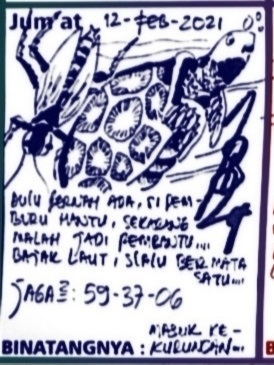 Jum'at 12-FEB-2021
DULU PERNAH ADA, SI PEM-
BURU HANTU, SEKARANG
MALAH JADI PEMBANTU....
BAJAK LAUT, SLALU BERMATA
SATU...
JAGA²: 59-37-06
MASUK KE-
BINATANGNYA : KURUNGAN...